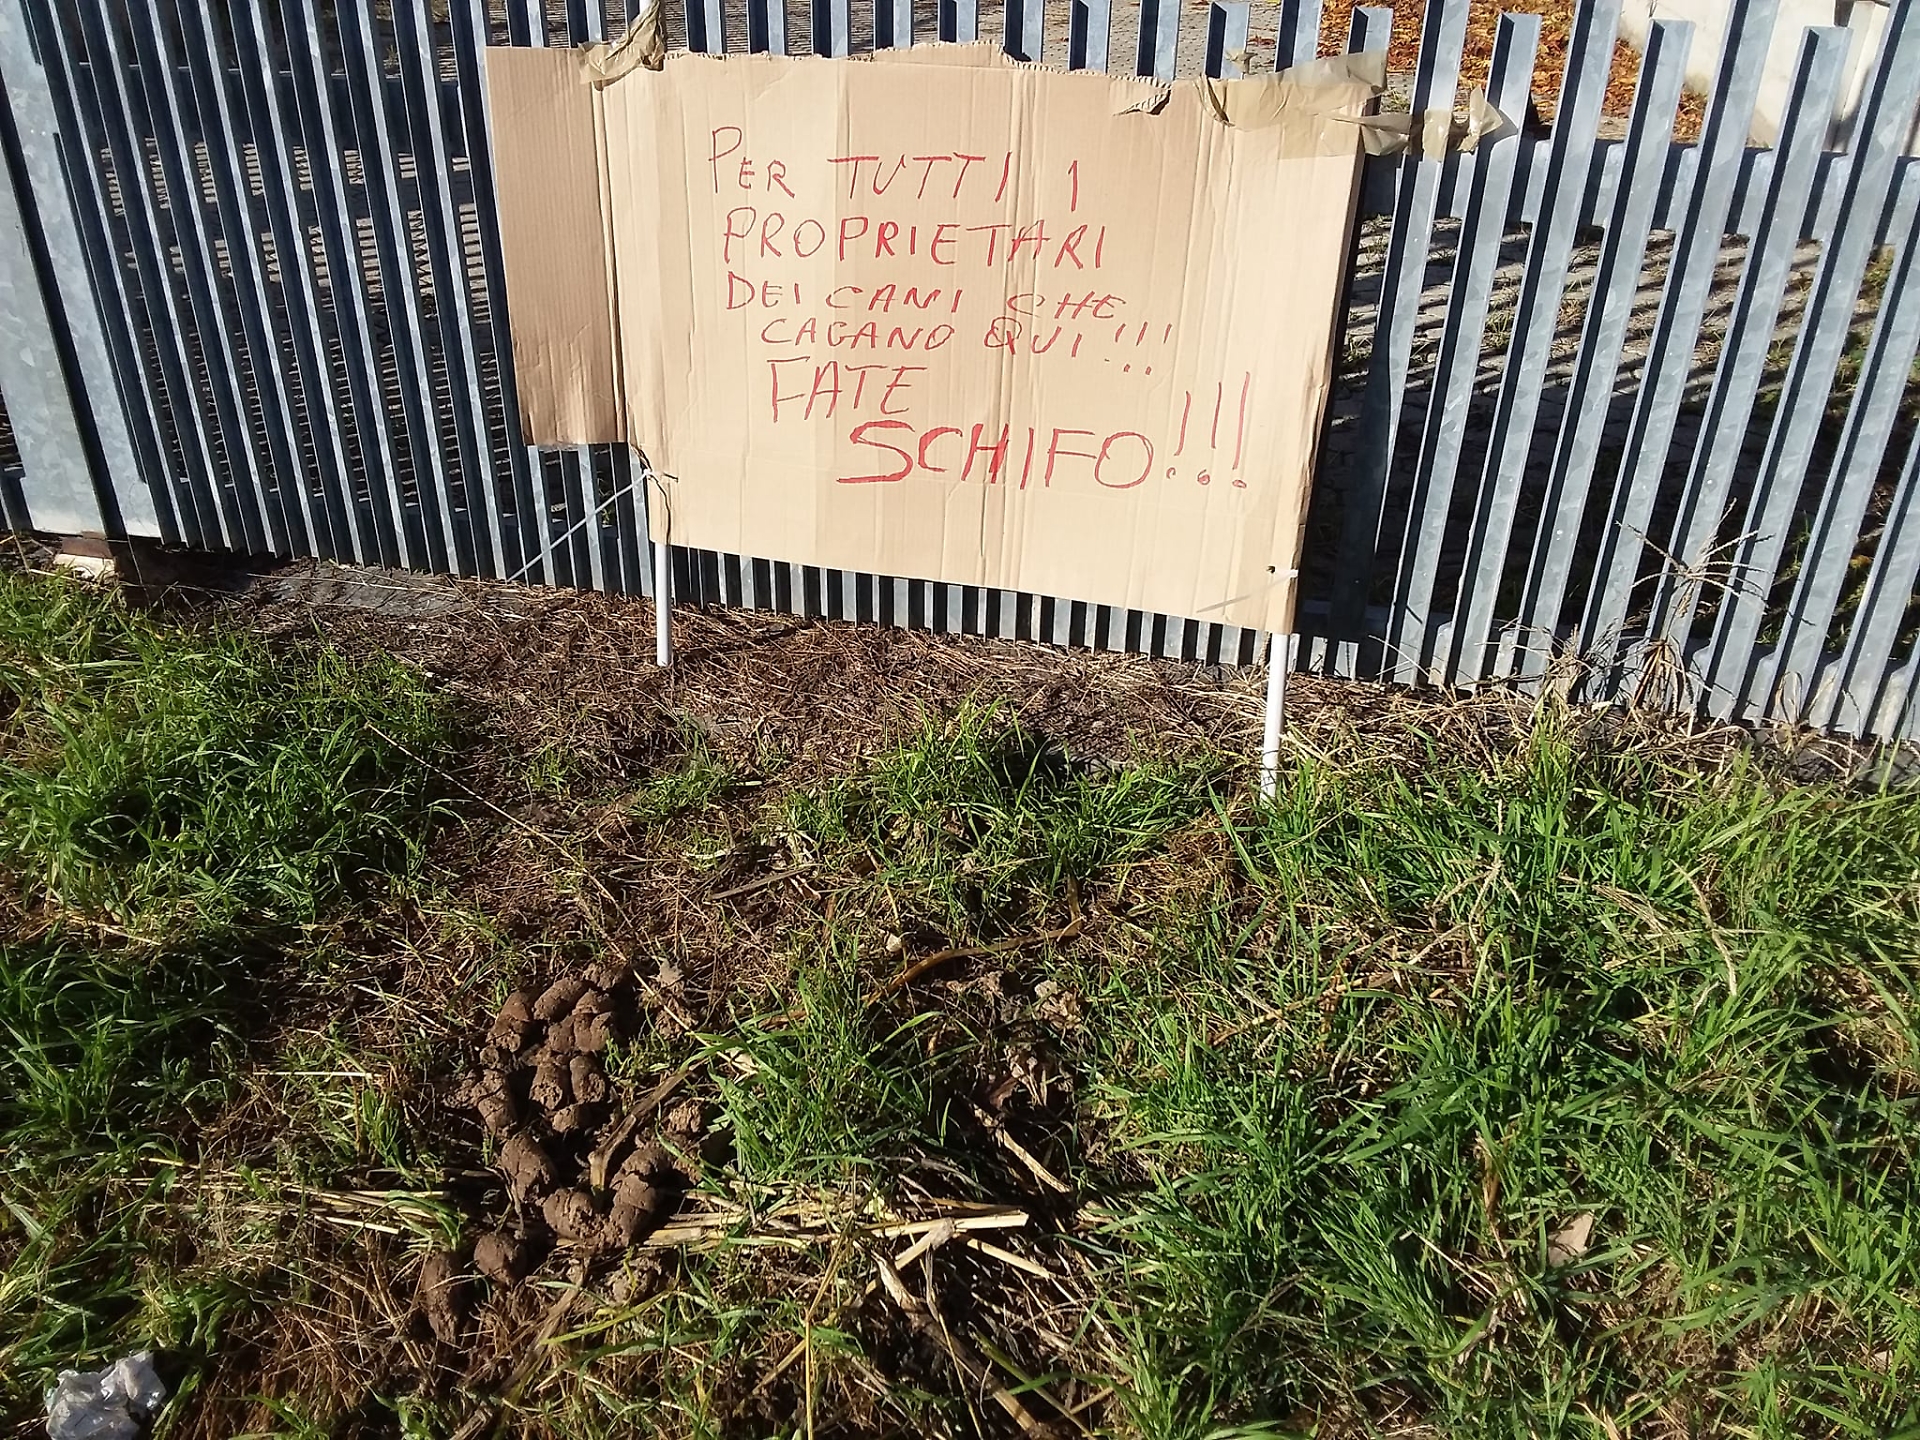 PER TUTTI I
PROPRIETARI
DEI CANI CHE
CAGANO QUI!!!
FATE
SCHIFO!!!